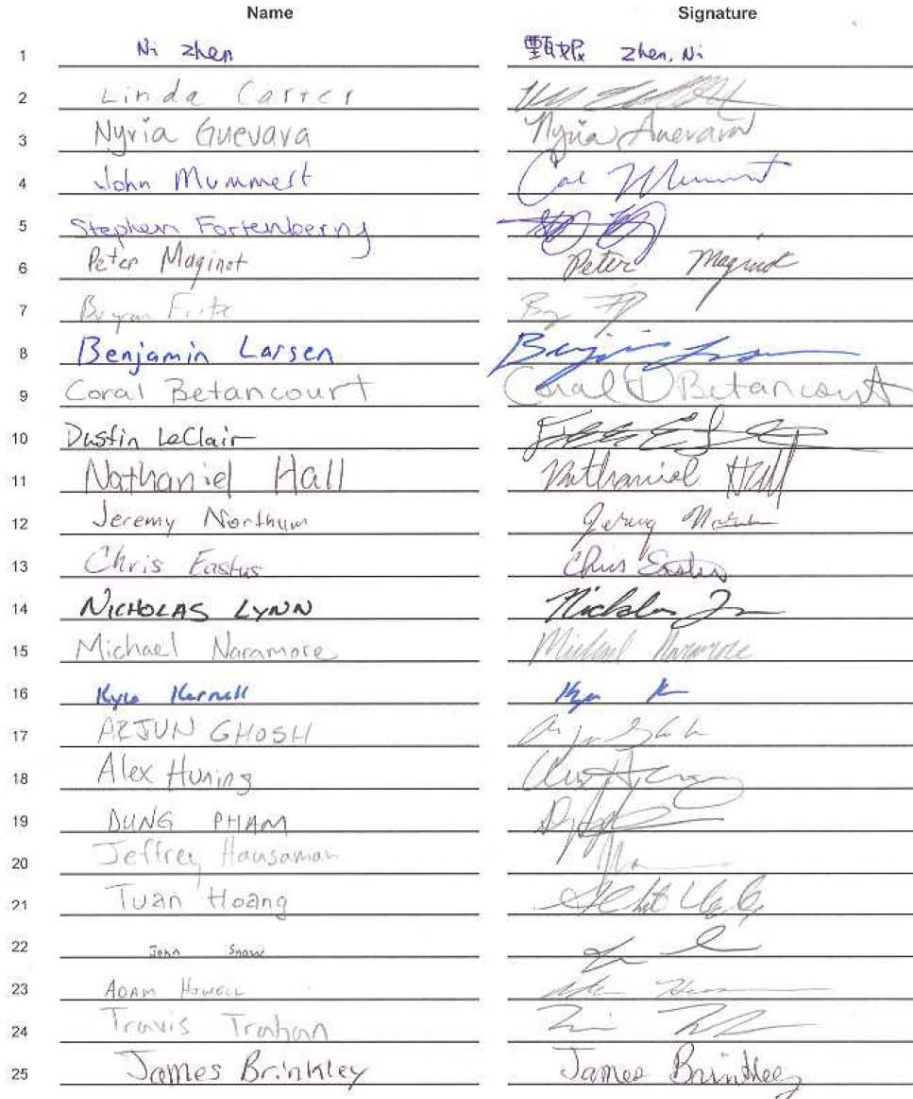 Name Signature
1 Ni Zhen 甄妮 Zhen, Ni
2 Linda Carter
3 Nyria Guevara Nyria Guevara
4 John Mummert Mummert
5 Stephen Fortenberry
6 Peter Maginot Peter Maginot
7 Bryan Fritz
8 Benjamin Larsen
9 Coral Betancourt Coral D Betancourt
10 Dustin LeClair
11 Nathaniel Hall Nathaniel Hall
12 Jeremy Northum Jeremy
13 Chris Eastus Chris Eastus
14 NICHOLAS LYNN Nicholas
15 Michael Naramore Michael Naramore
16 Kyle Kernell
17 ARJUN GHOSH
18 Alex Huning
19 DUNG PHAM
20 Jeffrey Hausaman
21 Tuan Hoang
22 John Snow
23 ADAM HOWELL
24 Travis Trahan
25 James Brinkley James Brinkley